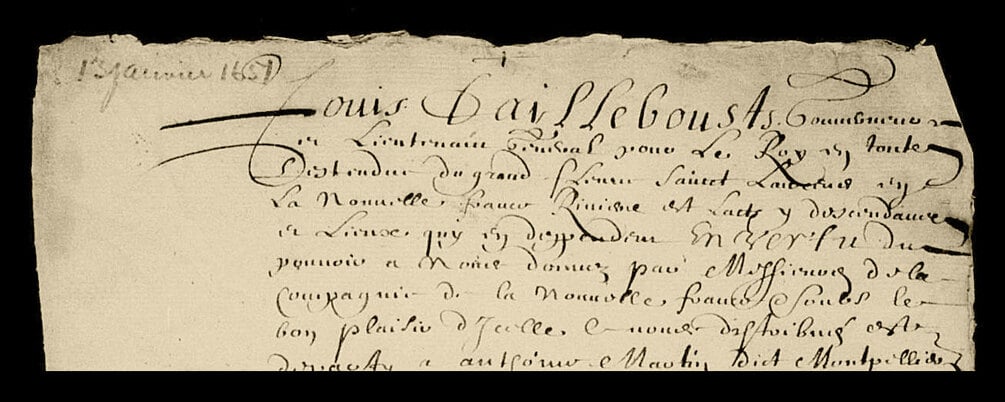 13 janvier 1651
Louis Dailleboust Gouverneur
et Lieutenant General pour Le Roy en toute
Lestendue du grand fleuve Sainct Laurens en
La Nouvelle france Riviere et Lacts y descendants
et Lieux quy en deppendent En vertu du
pouvoir a Nous donné par Messieurs de la
Compagnie de la Nouvelle france Soubs le
bon plaisir d'Icelle nous distribué
a anthoine Martin dict Montpellier